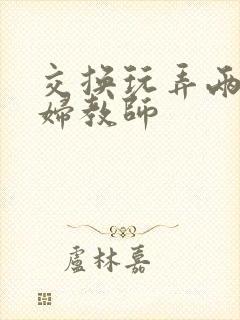 交换玩弄兩
婦教師
盧林嘉